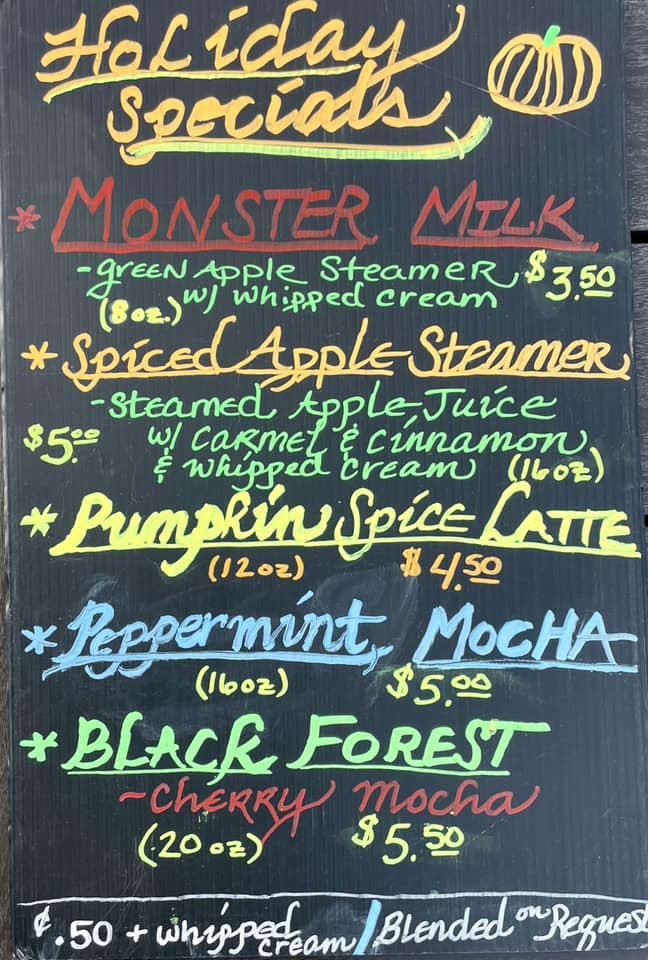 Holiday
Specials
* MONSTER MILK
-green Apple Steamer $3.50
(8oz.) w/ whipped cream
* Spiced Apple Steamer
-Steamed Apple Juice
$5.00 w/ Carmel & Cinnamon
& whipped cream (16oz)
* Pumpkin Spice Latte
(12oz) $4.50
* Peppermint MOCHA
(16oz) $5.00
* BLACK FOREST
~Cherry Mocha
(20oz) $5.50
¢.50 + whipped cream / Blended on Request